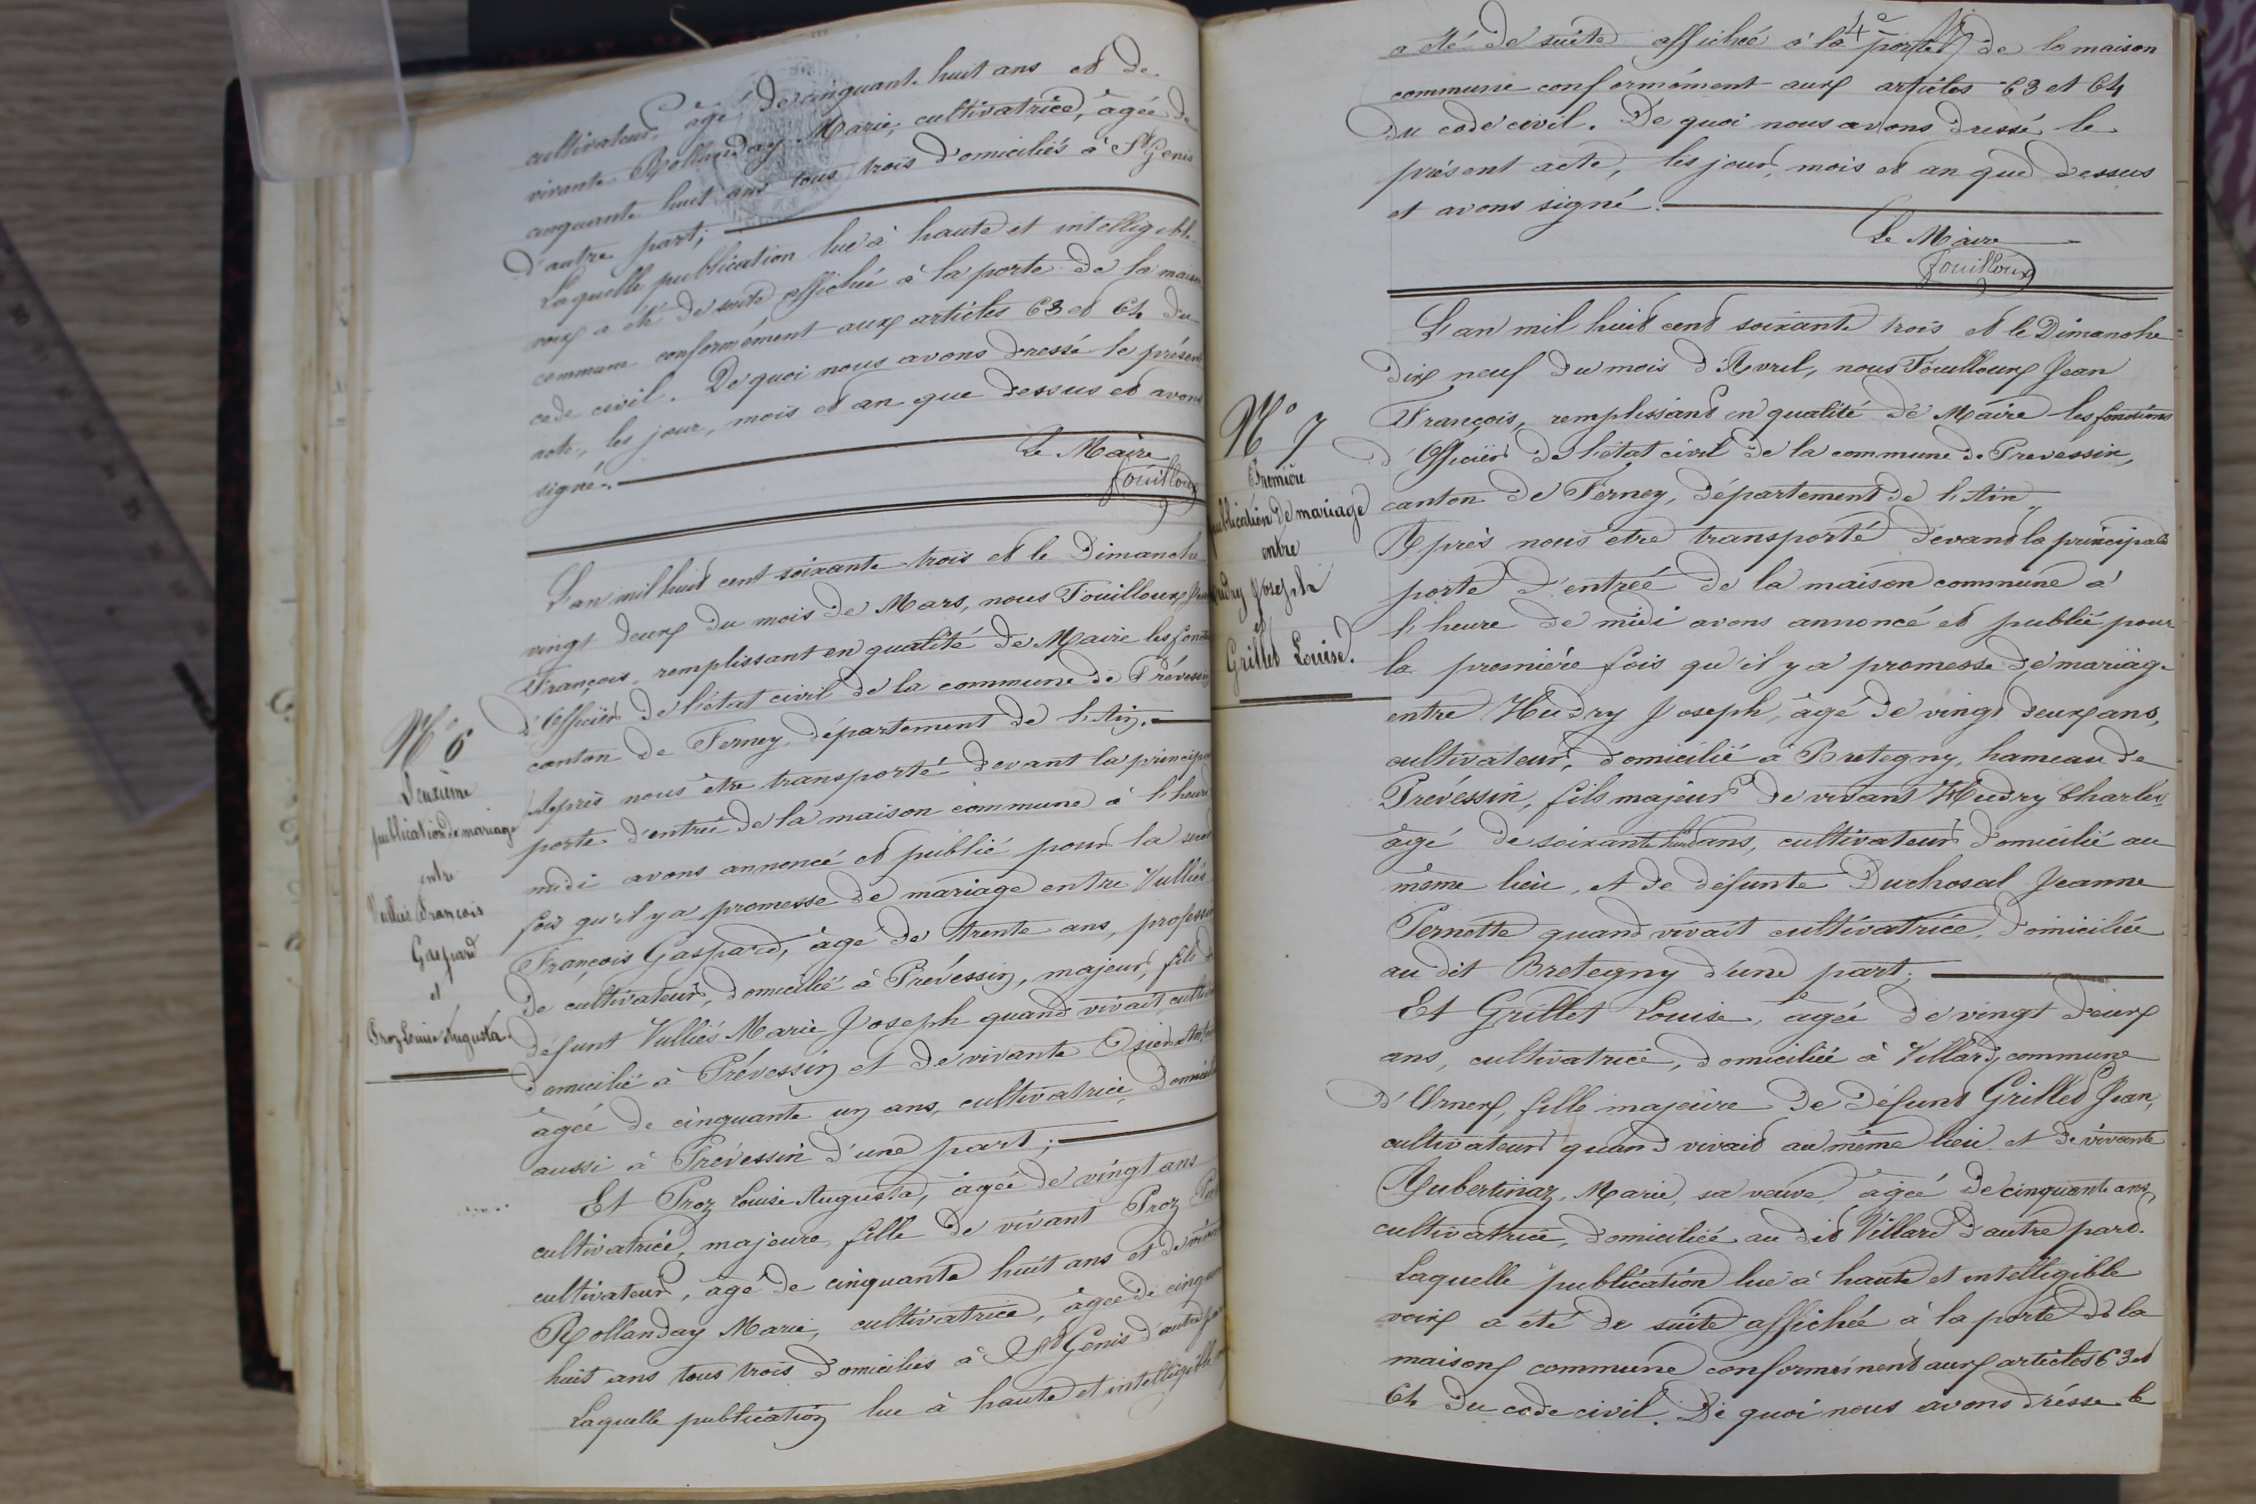 cultivateur, âgé de cinquante huit ans et de
vivante Rollanday Marie, cultivatrice, âgée de
cinquante huit ans tous trois domiciliés à St Genis
d'autre part;
Laquelle publication lue à haute et intelligible
voix a été de suite affichée à la porte de la maison
commune conformément aux articles 63 et 64 du
code civil. De quoi nous avons dressé le présent
acte, les jour, mois et an que dessus et avons
signé.
Le Maire
Fouilloux
N° 6
Deuxième
publication de mariage
entre
Vulliés François
Gaspard
et
Proz Louise Augusta
L'an mil huit cent soixante trois et le Dimanche
vingt deux du mois de Mars, nous Fouilloux Jean
François, remplissant en qualité de Maire les fonct
d'Officier de l'état civil de la commune de Prévessin
canton de Ferney, département de l'Ain.
Après nous être transporté devant la principa
porte d'entrée de la maison commune à l'heure
midi avons annoncé et publié pour la seco
fois qu'il y a promesse de mariage entre Vulliés
François Gaspard, âgé de trente ans, professi
de cultivateur, domicilié à Prévessin, majeur, fils de
défunt Vulliés Marie Joseph quand vivait cultiv
domicilié à Prévessin et de vivante
âgée de cinquante un ans, cultivatrice, domicili
aussi à Prévessin d'une part;
Et Proz Louise Augusta, âgée de vingt ans
cultivatrice, majeure, fille de vivant Proz
cultivateur, âgé de cinquante huit ans et de vivan
Rollanday Marie, cultivatrice, âgée de cinquan
huit ans tous trois domiciliés à St Genis d'autre pa
Laquelle publication lue à haute et intelligible
4e
a été de suite affichée à la porte de la maison
commune conformément aux articles 63 et 64
du code civil. De quoi nous avons dressé le
présent acte, les jour, mois et an que dessus
et avons signé.
Le Maire
Fouilloux
N° 7
Première
publication de mariage
entre
Hudry Joseph
et
Grillet Louise.
L'an mil huit cent soixante trois et le Dimanche
dix neuf du mois d'Avril, nous Fouilloux Jean
François, remplissant en qualité de Maire les fonctions
d'Officier de l'état civil de la commune de Prevessin,
canton de Ferney, département de l'Ain
Après nous être transporté devant la principale
porte d'entrée de la maison commune à
l'heure de midi avons annoncé et publié pour
la première fois qu'il y a promesse de mariage
entre Hudry Joseph, âgé de vingt deux ans,
cultivateur, domicilié à Bretegny, hameau de
Prévessin, fils majeur de vivant Hudry Charles,
âgé de soixante huit ans, cultivateur domicilié au
même lieu, et de défunte Duchosal Jeanne
Pernette quand vivait cultivatrice, domiciliée
au dit Bretegny d'une part;
Et Grillet Louise, âgée de vingt deux
ans, cultivatrice, domiciliée à Villard, commune
d'Ornex, fille majeure de défunt Grillet Jean,
cultivateur quand vivait au même lieu et de vivante
Aubertinaz, Marie, sa veuve âgée de cinquante ans,
cultivatrice, domiciliée au dit Villard d'autre part.
Laquelle publication lue à haute et intelligible
voix a été de suite affichée à la porte de la
maison commune conformément aux articles 63 et
64 du code civil. De quoi nous avons dressé le